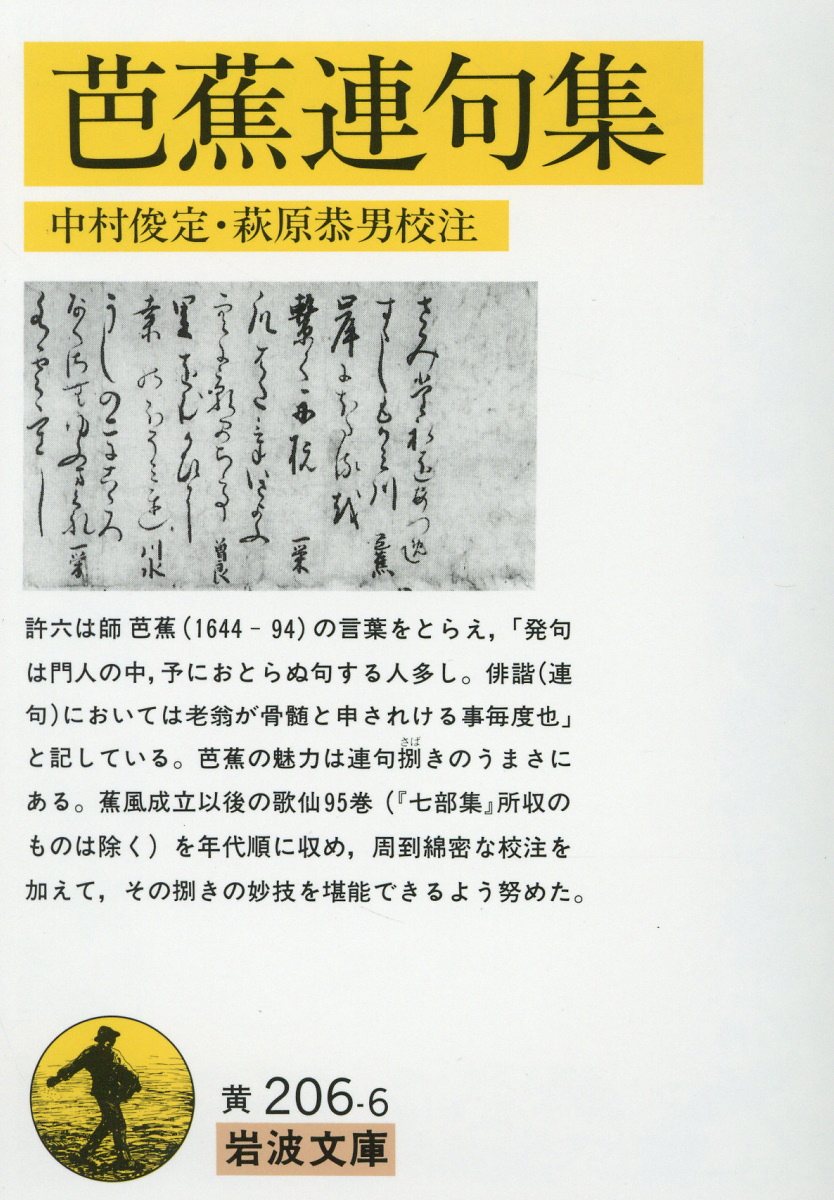 芭蕉連句集
中村俊定・萩原恭男校注
芭蕉
岸
一栄
曽良
川水
一栄
許六は師 芭蕉(1644－94)の言葉をとらえ,「発句
は門人の中,予におとらぬ句する人多し。俳諧(連
句)においては老翁が骨髄と申されける事毎度也」
と記している。芭蕉の魅力は連句捌さばきのうまさに
ある。蕉風成立以後の歌仙95巻(『七部集』所収の
ものは除く)を年代順に収め,周到綿密な校注を
加えて,その捌きの妙技を堪能できるよう努めた。
黄 206-6
岩波文庫